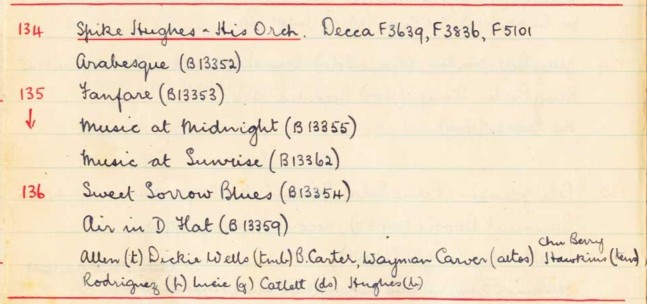 134 Spike Hughes & His Orch. Decca F3639, F3836, F5101
Arabesque (B13352)
135 Fanfare (B13353)
↓ Music at Midnight (B13355)
Music at Sunrise (B13362)
136 Sweet Sorrow Blues (B13354)
Air in D Flat (B13359)
Chu Berry
Allen (t) Dickie Wells (tmb) B. Carter, Wayman Carver (altos) Hawkins (tens)
Rodriguez (p) Lucie (g) Catlett (ds) Hughes (b)